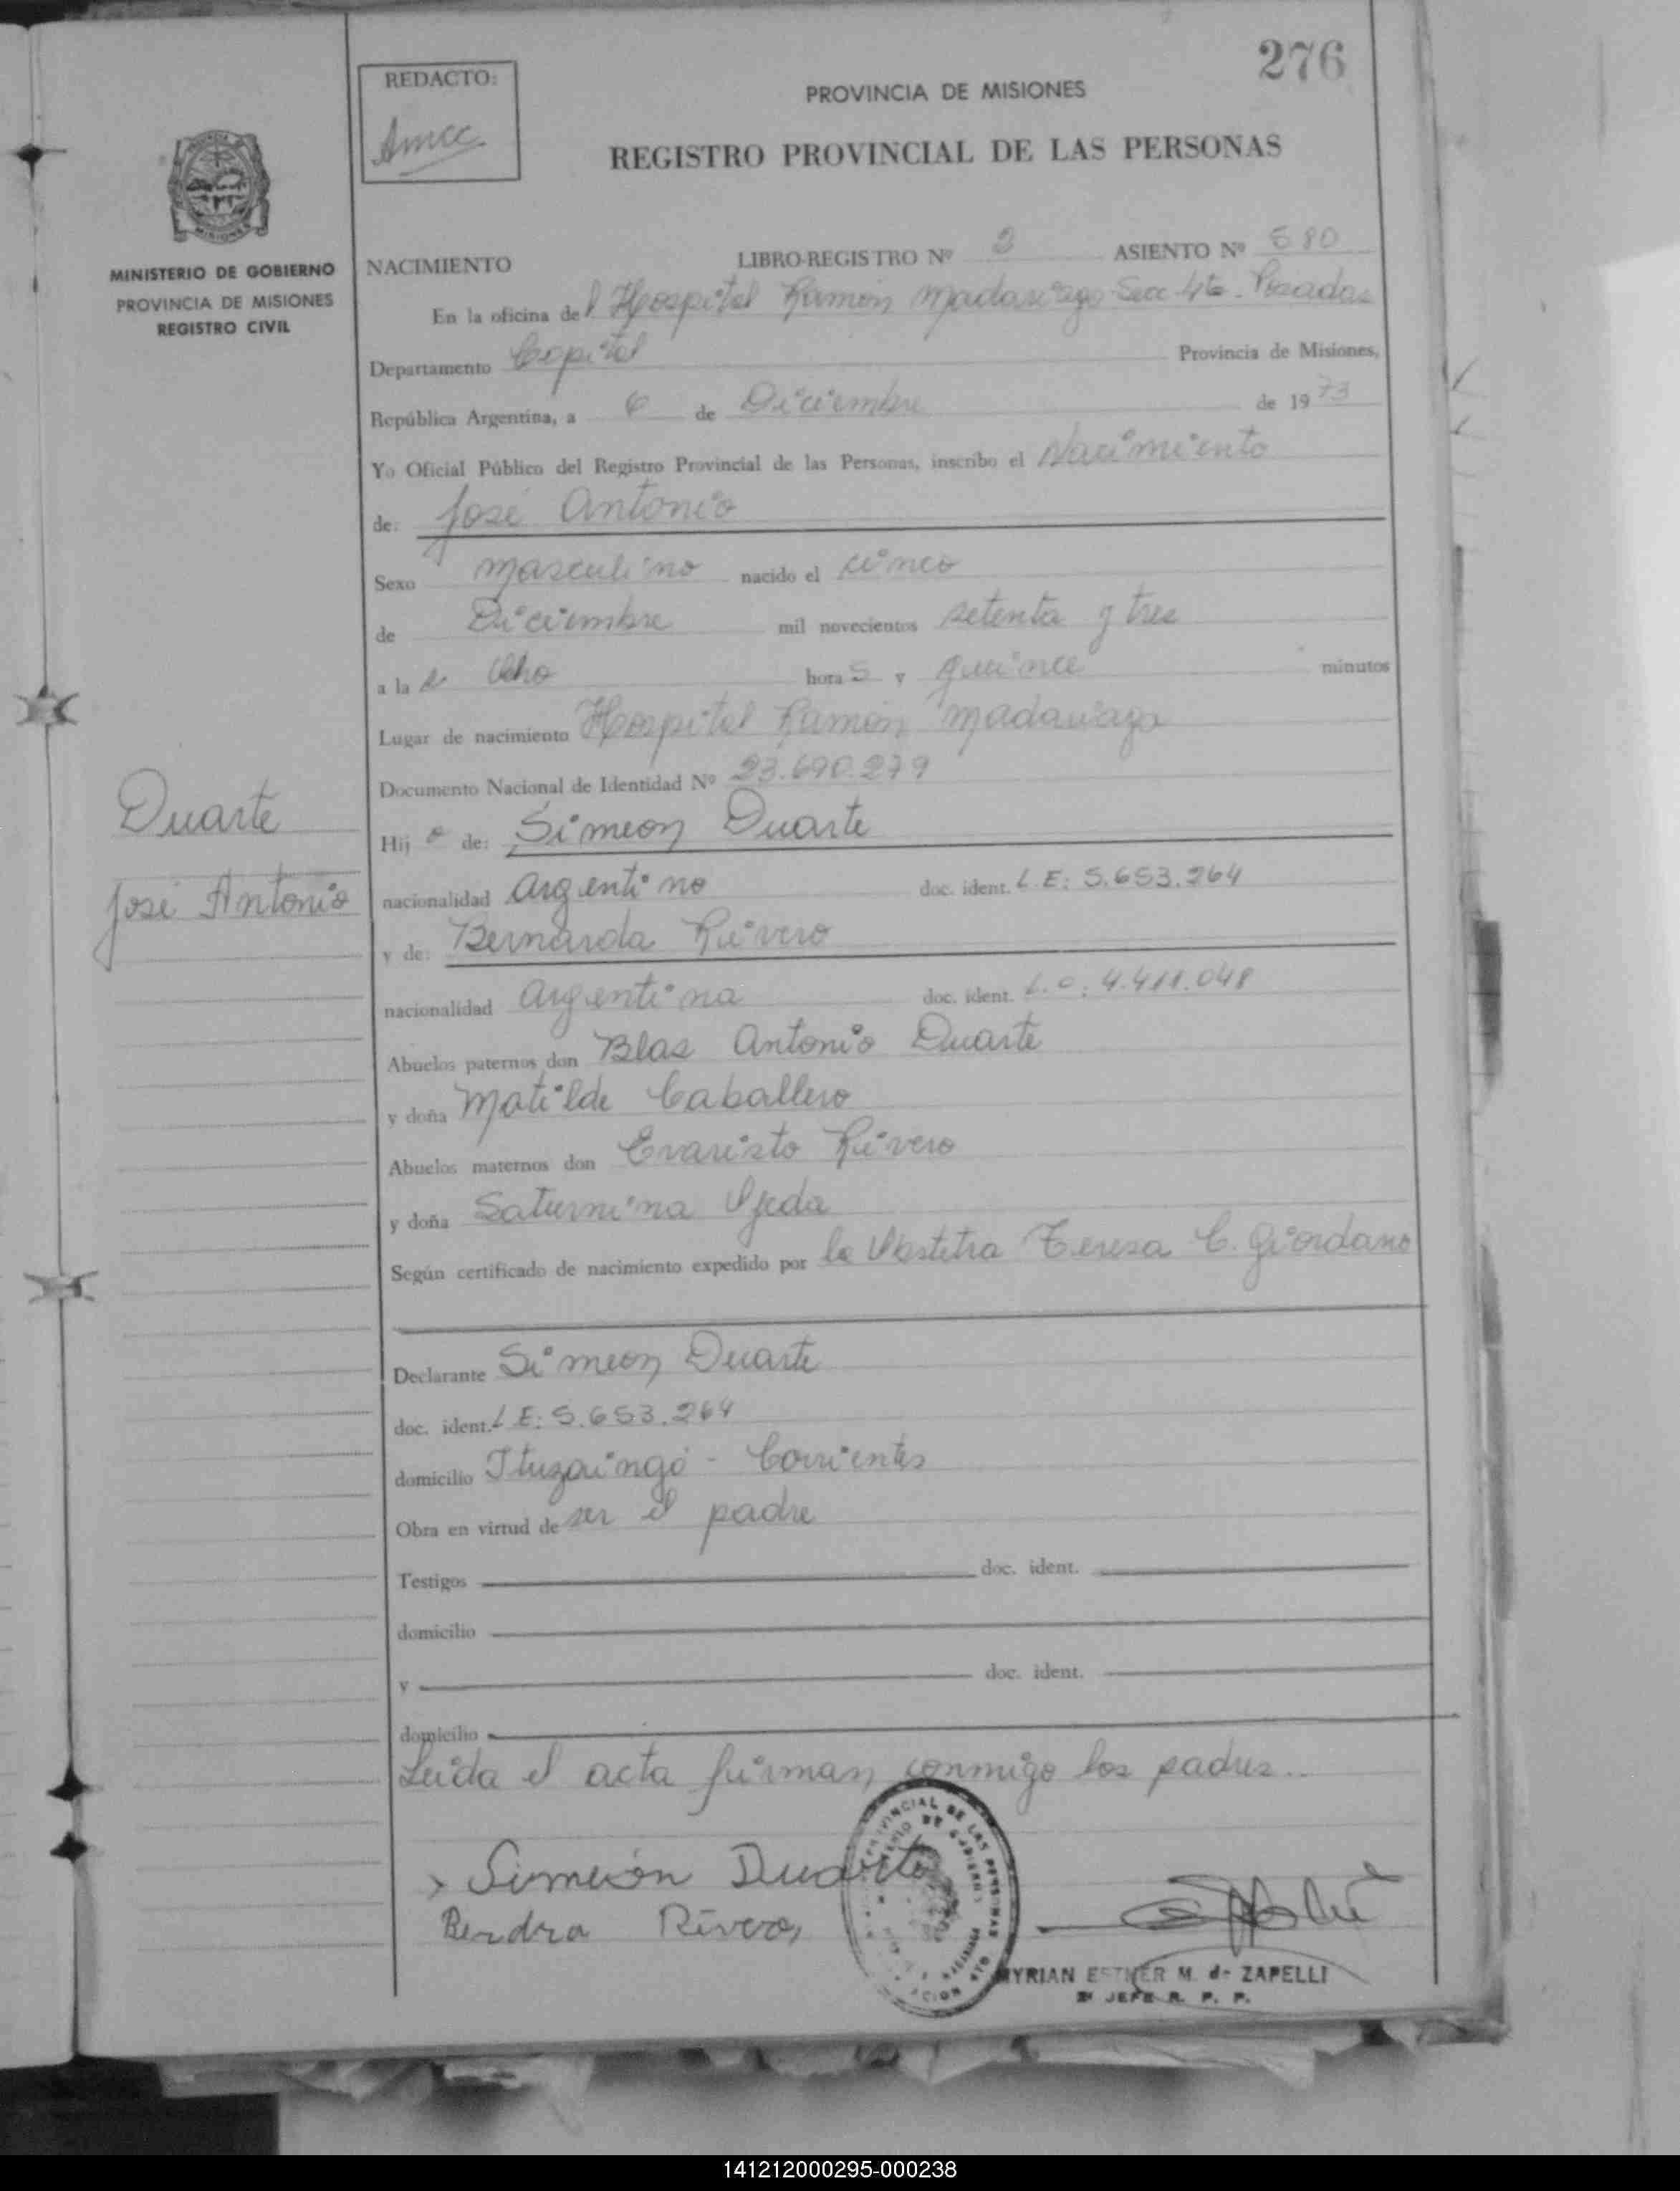 276
REDACTO:
Amcc
PROVINCIA DE MISIONES
REGISTRO PROVINCIAL DE LAS PERSONAS
MINISTERIO DE GOBIERNO
PROVINCIA DE MISIONES
REGISTRO CIVIL
NACIMIENTO LIBRO-REGISTRO Nº 2 ASIENTO Nº 580
En la oficina del Hospital Ramón Madariaga Secc 4ta. Posadas
Departamento Capital Provincia de Misiones,
República Argentina, a 6 de Diciembre de 1973
Yo Oficial Público del Registro Provincial de las Personas, inscribo el Nacimiento
de: José Antonio
Sexo masculino nacido el cinco
de Diciembre mil novecientos setenta y tres
a la s Ocho hora s y quince minutos
Lugar de nacimiento Hospital Ramón Madariaga
Documento Nacional de Identidad Nº 23.690.279
Duarte
José Antonio
Hij o de: Simeon Duarte
nacionalidad Argentino doc. ident. L.E: 5.653.264
y de: Bernarda Rivero
nacionalidad Argentina doc. ident. L.C: 4.411.048
Abuelos paternos don Blas Antonio Duarte
y doña Matilde Caballero
Abuelos maternos don Evaristo Rivero
y doña Saturnina Ojeda
Según certificado de nacimiento expedido por la Obstetra Teresa C. Giordano
Declarante Simeon Duarte
doc. ident. L E: 5.653.264
domicilio Ituzaingó - Corrientes
Obra en virtud de ser el padre
Testigos doc. ident.
domicilio
y doc. ident.
domicilio
Leida el acta firman conmigo los padres..
Simeión Duarte
Berdra Rivero
MYRIAN ESTHER M. de ZAPELLI
2º JEFE R. P. P.
141212000295-000238